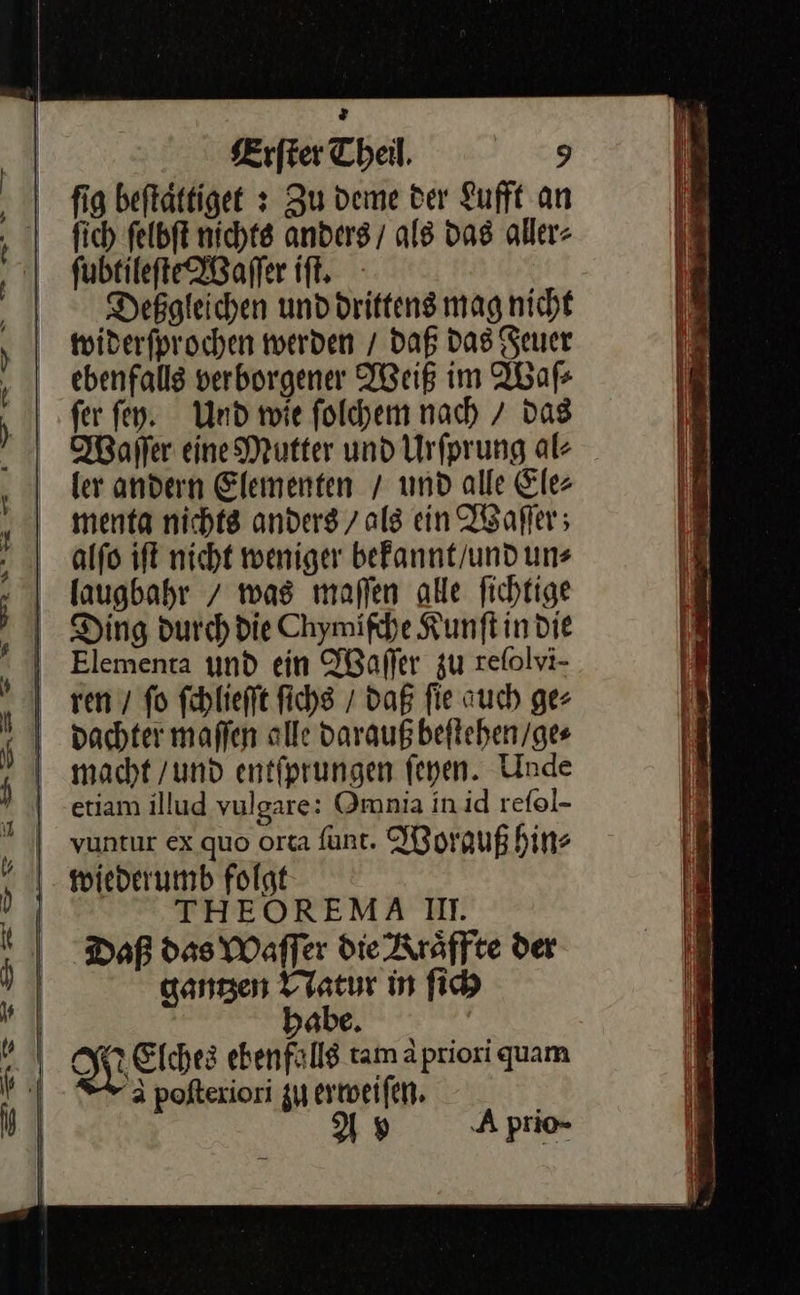 Erſter Theil. 9
ſig beſtaͤttiget : Zu deme der Lufft an
ſich ſelbſt nichts anders / als das aller⸗
ſubtileſte Waſſer iſt.
Deßgleichen und drittens mag nicht
widerſprochen werden / daß das Feuer
ebenfalls verborgener Weiß im Waſ⸗
ſer ſey. Und wie ſolchem nach / das
Waſſer eine Mutter und Urſprung al⸗
ler andern Elementen / und alle Ele⸗
menta nichts anders / als ein Waſſer;
alſo iſt nicht weniger bekannt / und un⸗
laugbahr / was maſſen alle ſichtige
Ding durch die Chymiſche Kunſt in die
Elementa und ein Waſſer zu reſolvi-
ren / ſo ſchlieſſt ſichs / daß ſie auch ge⸗
dachter maſſen alle darauß beſtehen / ge⸗
macht / und entſprungen ſeyen. Unde
etiam illud vulgare: Omnia in id reſol-
vuntur ex quo orta ſunt. Worauß hin⸗
wiederumb folgt
THEOREMA III.
Daß das Waſſer die Kraͤffte der
gantzen Natur in ſich
habe.
WElches ebenfalls tam à priori quam
à poſteriori zu erweiſen.
A v A prio-